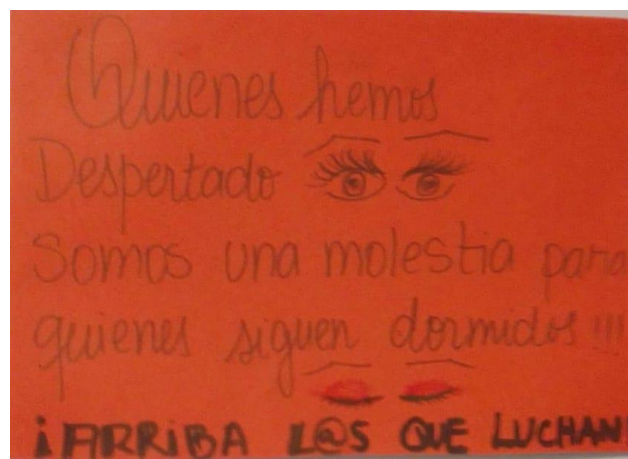 Quienes hemos
Despertado
Somos una molestia para
quienes siguen dormidos !!!
¡ARRiBA L@S QUE LUCHAN!